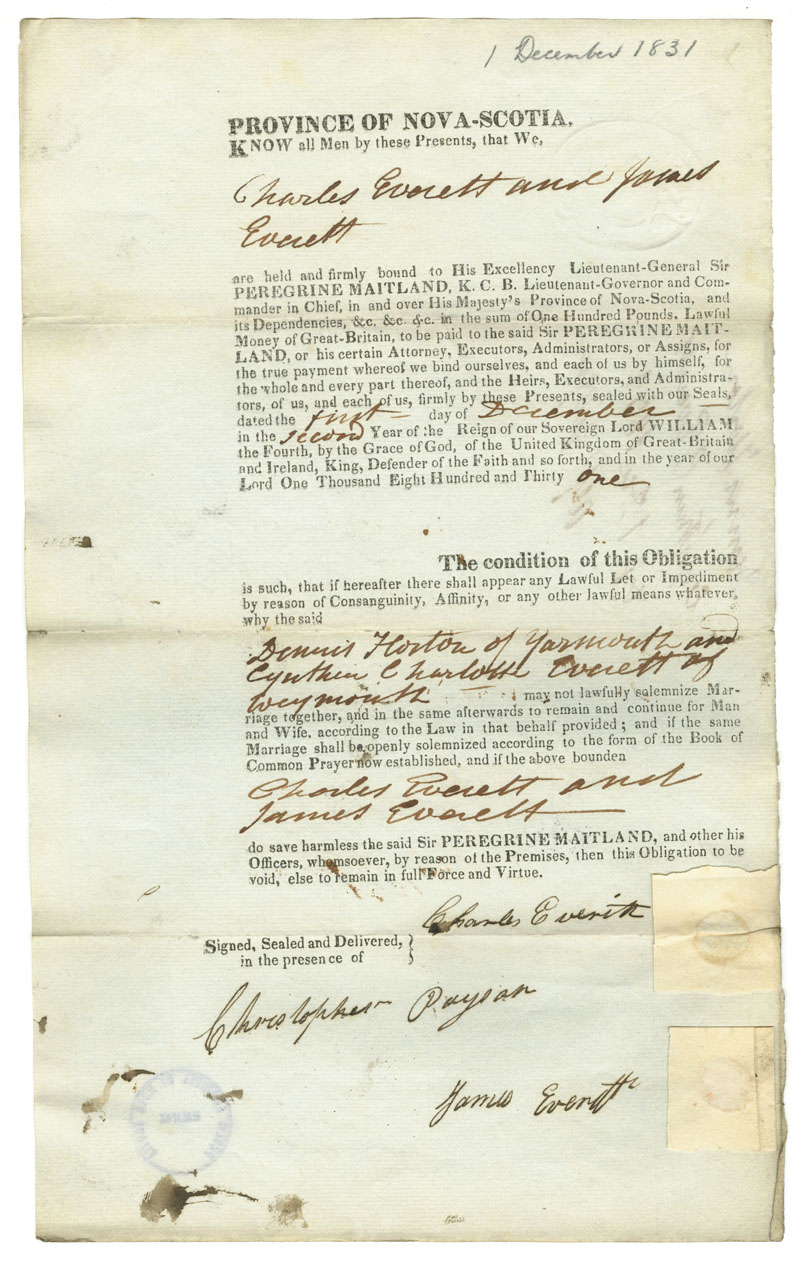 1 December 1831
PROVINCE OF NOVA-SCOTIA.
KNOW all Men by these Presents, that We,
Charles Everett and James
Everett
are held and firmly bound to His Excellency Lieutenant-General Sir
PEREGRINE MAITLAND, K. C. B. Lieutenant-Governor and Com-
mander in Chief, in and over His Majesty's Province of Nova-Scotia, and
its Dependencies, &c. &c. &c. in the sum of One Hundred Pounds. Lawful
Money of Great-Britain, to be paid to the said Sir PEREGRINE MAIT-
LAND, or his certain Attorney, Executors, Administrators, or Assigns, for
the true payment whereof we bind ourselves, and each of us by himself, for
the whole and every part thereof, and the Heirs, Executors, and Administra-
tors, of us, and each of us, firmly by these Presents, sealed with our Seals,
dated the first day of December
in the second Year of the Reign of our Sovereign Lord WILLIAM
the Fourth, by the Grace of God, of the United Kingdom of Great-Britain
and Ireland, King, Defender of the Faith and so forth, and in the year of our
Lord One Thousand Eight Hundred and Thirty one
The condition of this Obligation
is such, that if hereafter there shall appear any Lawful Let or Impediment
by reason of Consanguinity, Affinity, or any other lawful means whatever,
why the said
Dennis Horton of Yarmouth and
Cynthia Charlotte Everett of
Weymouth may not lawfully solemnize Mar-
riage together, and in the same afterwards to remain and continue for Man
and Wife, according to the Law in that behalf provided; and if the same
Marriage shall be openly solemnized according to the form of the Book of
Common Prayer now established, and if the above bounden
Charles Everett and
James Everett
do save harmless the said Sir PEREGRINE MAITLAND, and other his
Officers, whomsoever, by reason of the Premises, then this Obligation to be
void, else to remain in full Force and Virtue.
Charles Everitt
Signed, Sealed and Delivered,
in the presence of
Christopher Payson
James Everett